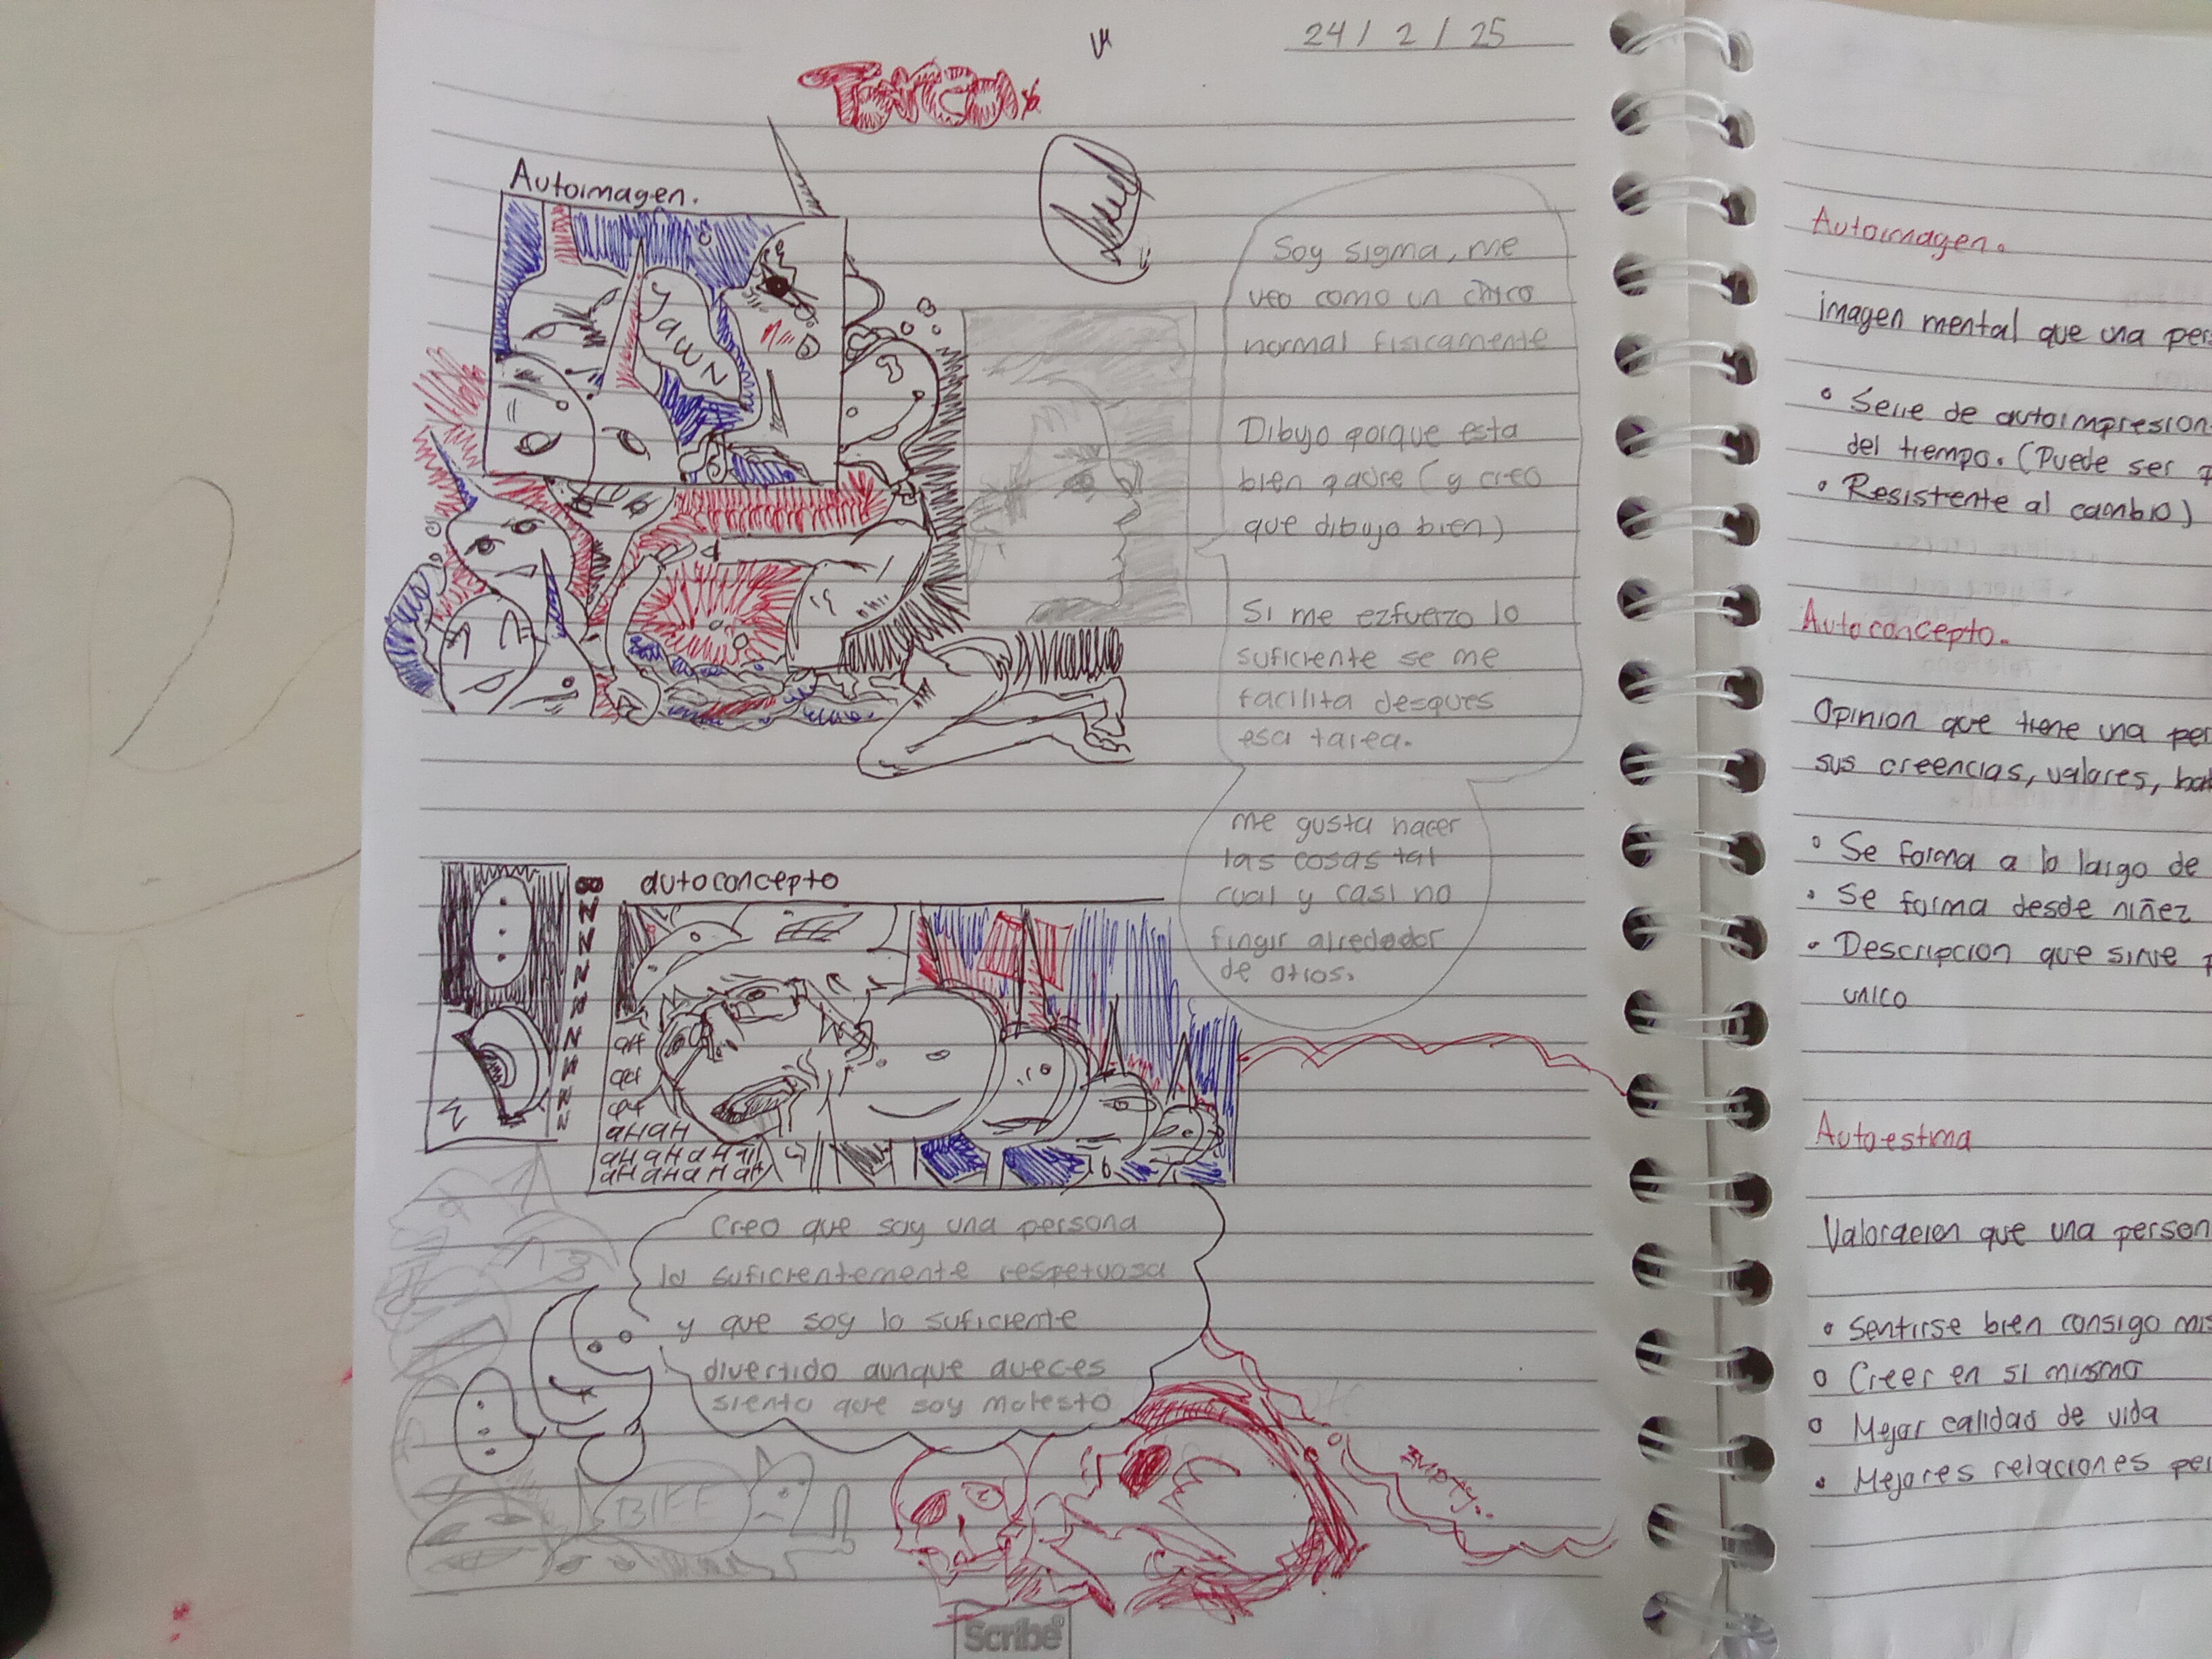 24 / 2 / 25
Autoimagen.
YAWN
Soy sigma, me
veo como un chico
normal fisicamente
Dibujo porque esta
bien padre (y creo
que dibujo bien)
Si me ezfuerzo lo
suficiente se me
facilita despues
esa tarea.
me gusta hacer
las cosas tal
cual y casi no
fingir alrededor
de otros.
autoconcepto
aHaH
aHaHaH
aHaHaHaH
Creo que soy una persona
lo suficientemente respetuosa
y que soy lo suficiente
divertido aunque aveces
siento que soy molesto
EMPTY..
Scribe®
Autoimagen.
imagen mental que una
• Serie de
del tiempo. (Puede ser
• Resistente al cambio)
Autoconcepto.
Opinion que tiene una
sus creencias, valores,
• Se forma a lo largo de
• Se forma desde niñez
• Descripcion que sirve
unico
Autoestima
Valoracion que una
• Sentirse bien consigo
• Creer en si mismo
• Mejor calidad de vida
• Mejores relaciones